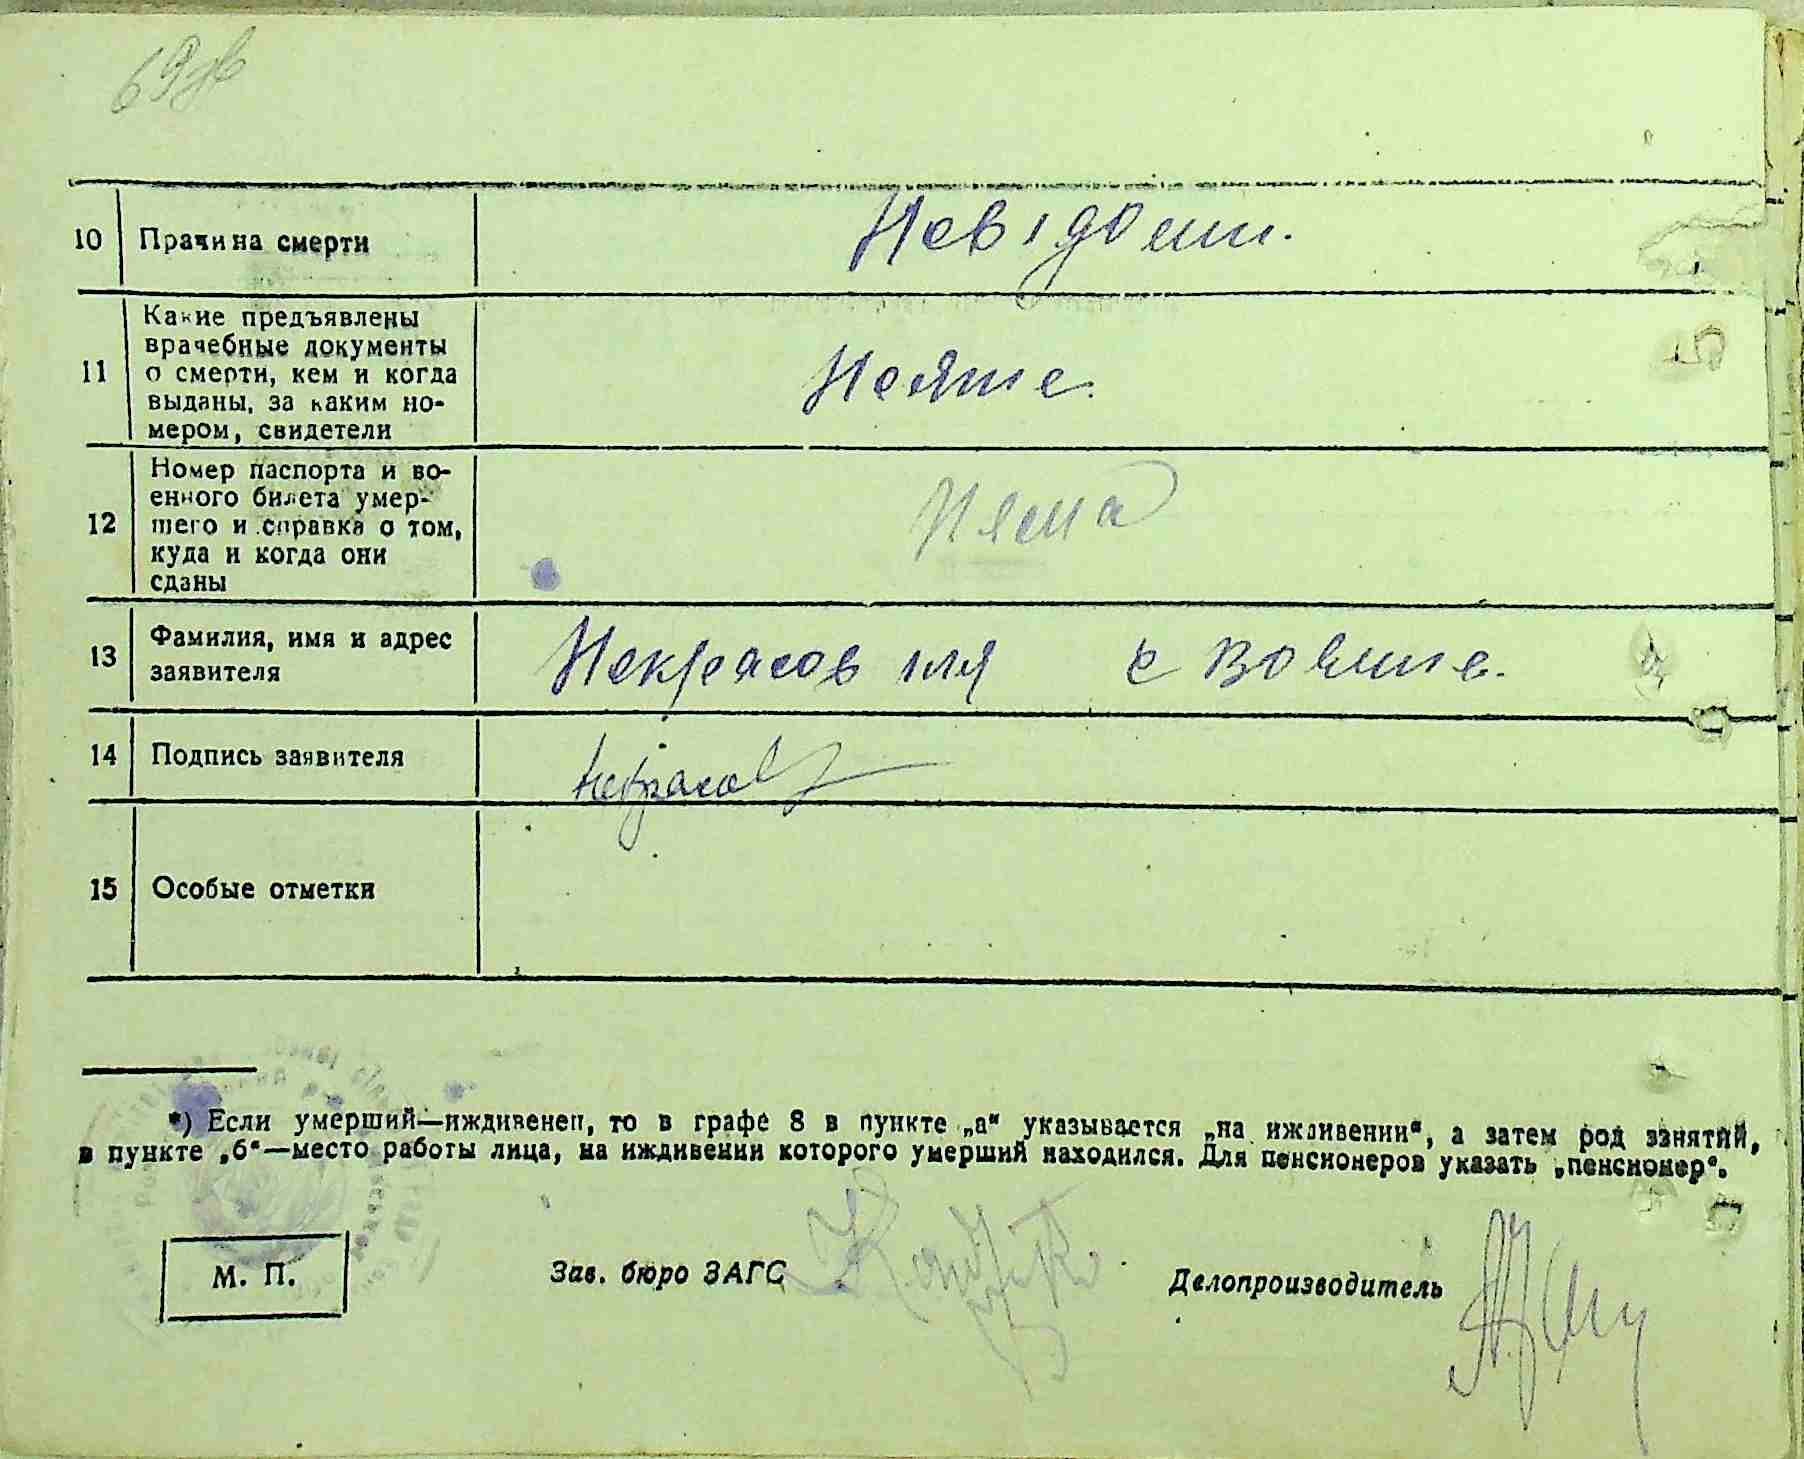 69зв
10 Причина смерти Невідоми.
11 Какие предъявлены
врачебные документы
о смерти, кем и когда
выданы, за каким но-
мером, свидетели
12 Номер паспорта и во-
енного билета умер-
шего и справка о том,
куда и когда они
сданы
Няма
13 Фамилия, имя и адрес
заявителя
Некрасов Іля с
14 Подпись заявителя Некрасов
15 Особые отметки
*) Если умерший—иждивенец, то в графе 8 в пункте „а“ указывается „на иждивении“, а затем род занятий,
в пункте „б“—место работы лица, на иждивении которого умерший находился. Для пенсионеров указать „пенсионер“.
М. П. Зав. бюро ЗАГС Делопроизводитель